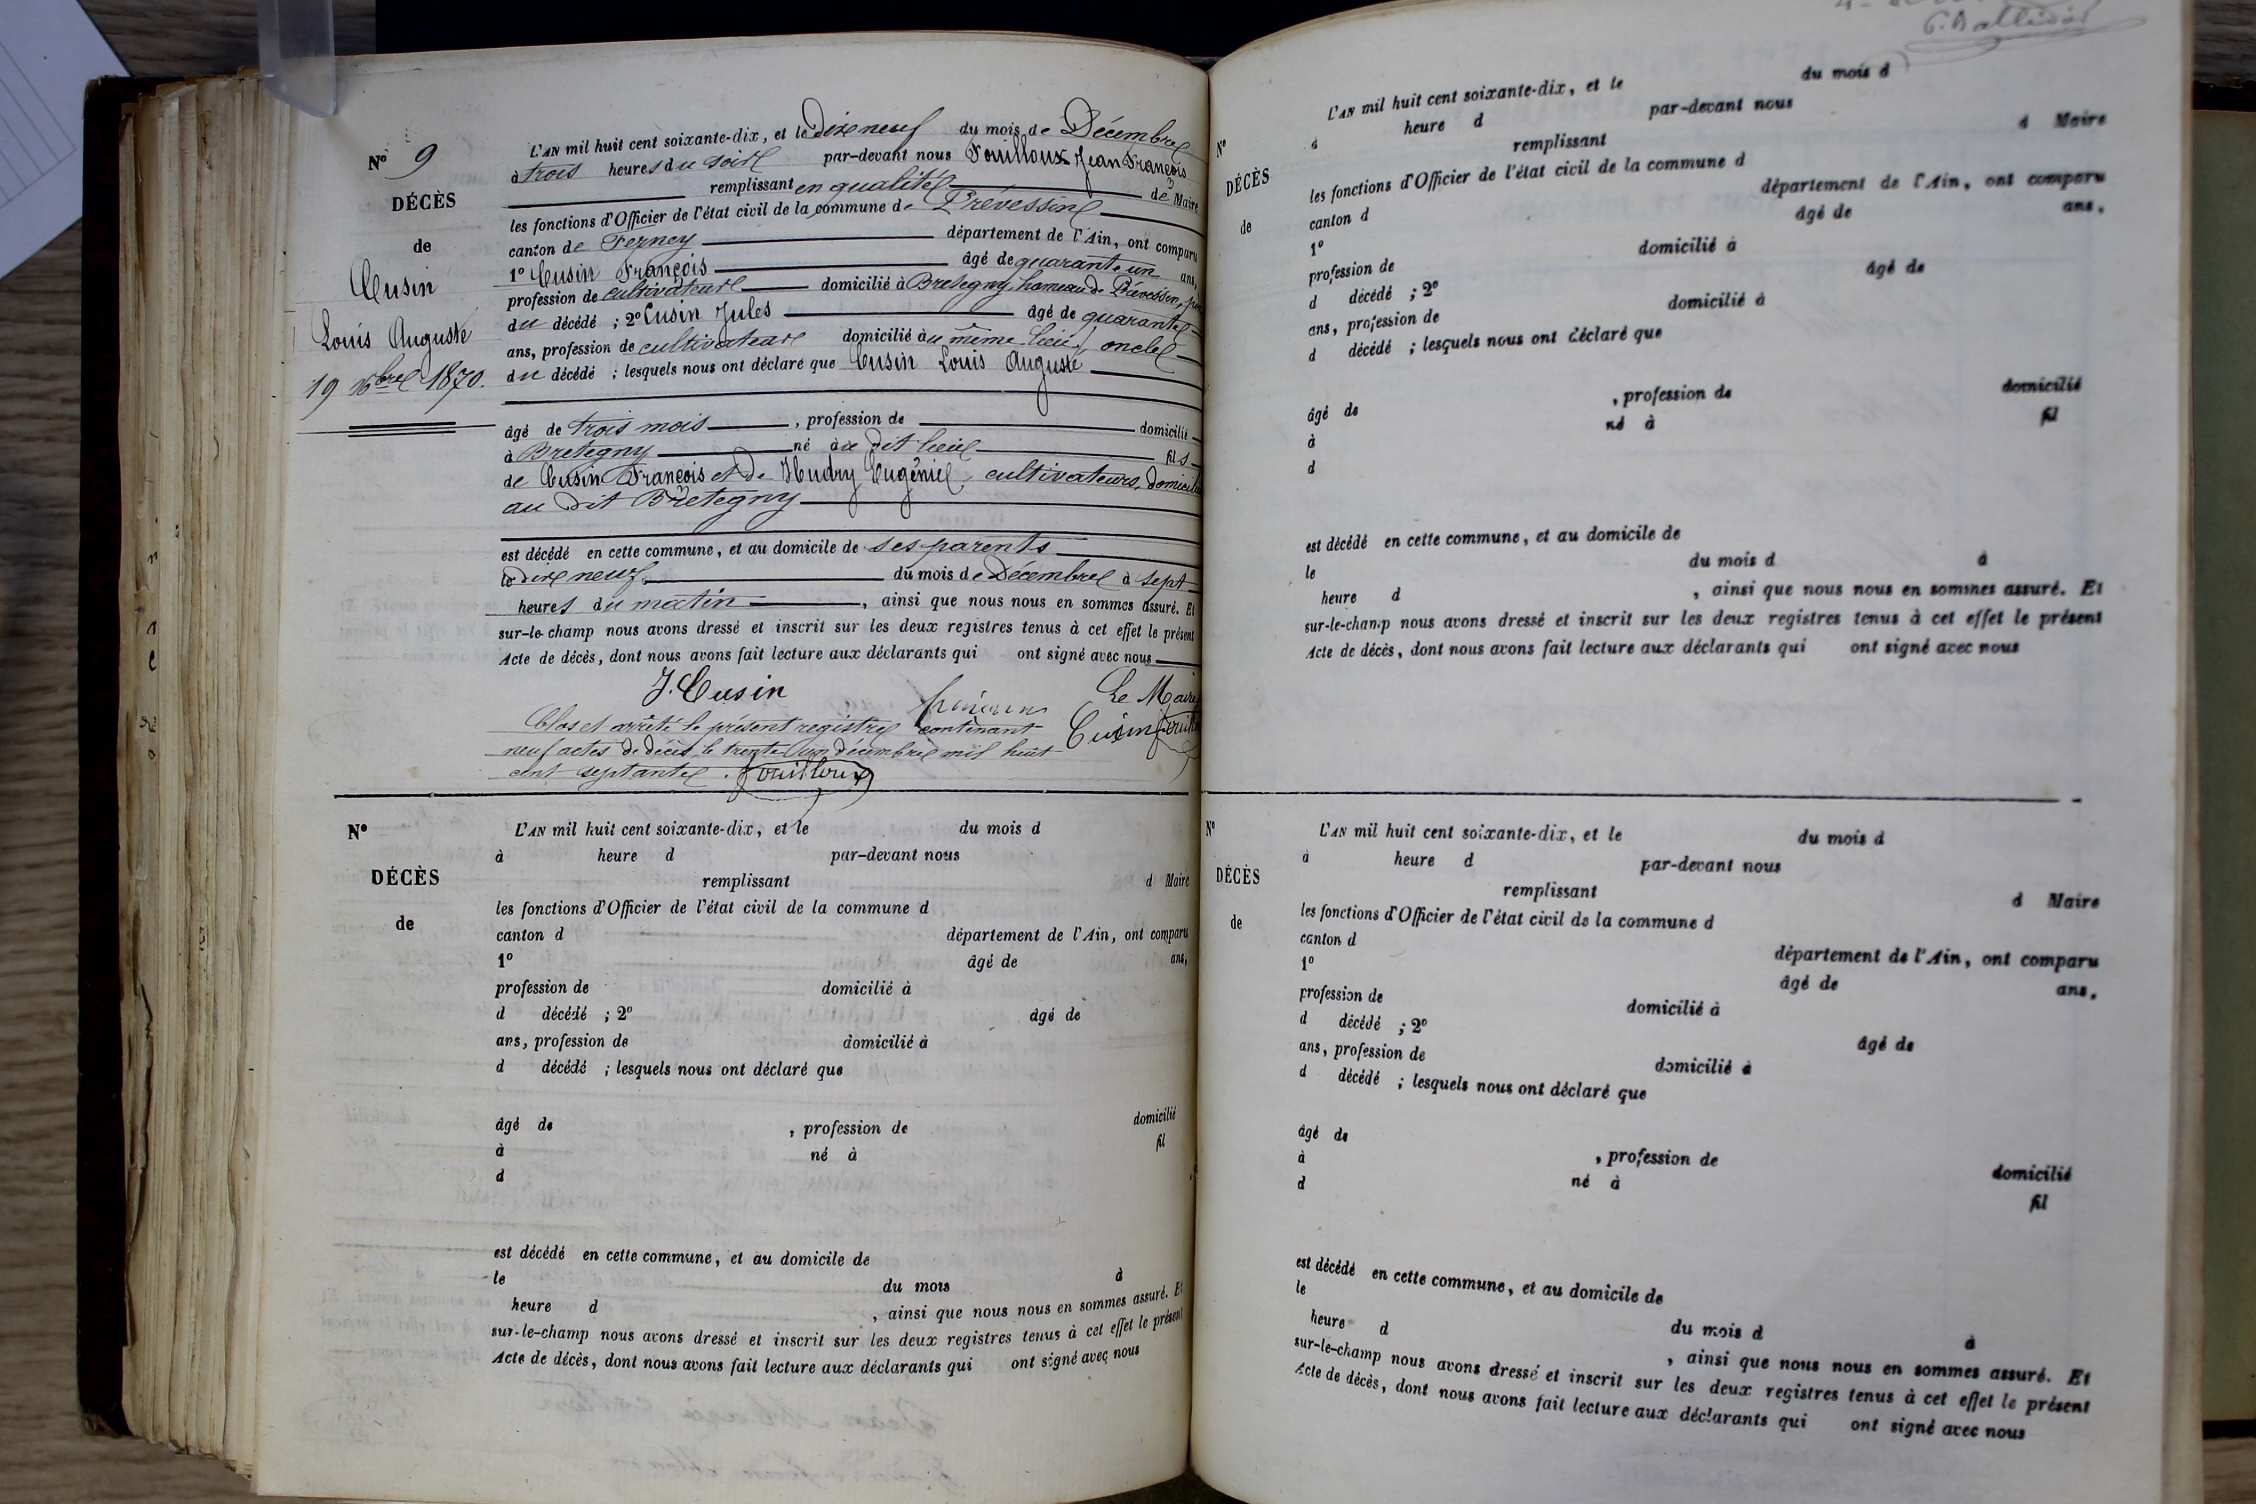 N° 9
DÉCÈS
de
Cusin
Louis Auguste
19 Xbre 1870.
L'AN mil huit cent soixante-dix, et le dixe neuf du mois de Décembre
à trois heures du soire par-devant nous Fouilloux Jean François
remplissant en qualité de Maire
les fonctions d'Officier de l'état civil de la commune de Prévessin
canton de Ferney département de l'Ain, ont comparu
1° Cusin François âgé de quarante un ans,
profession de cultivateur domicilié à Bretegny, hameau de Prévessin, père
du décédé ; 2° Cusin Jules âgé de quarante
ans, profession de cultivateur domicilié au même lieu, oncle
du décédé ; lesquels nous ont déclaré que Cusin Louis Auguste
âgé de trois mois , profession de domicilié
à Bretegny né au dit lieu fils
de Cusin François et de Hudry Eugénie, cultivateurs, domiciliés
au dit Bretegny
est décédé en cette commune, et au domicile de ses parents
le dixe neuf du mois de Décembre à sept
heures du matin , ainsi que nous nous en sommes assuré. Et
sur-le-champ nous avons dressé et inscrit sur les deux registres tenus à cet effet le présent
Acte de décès, dont nous avons fait lecture aux déclarants qui ont signé avec nous
J. Cusin Le Maire
Cusin
Clos et arrêté le présent registre contenant
neuf actes de décès le trente un décembre mil huit
cent septante. Fouilloux
N°
DÉCÈS
de
L'AN mil huit cent soixante-dix, et le du mois d
à heure d par-devant nous
remplissant d Maire
les fonctions d'Officier de l'état civil de la commune d
canton d département de l'Ain, ont comparu
1° âgé de ans,
profession de domicilié à
d décédé ; 2° âgé de
ans, profession de domicilié à
d décédé ; lesquels nous ont déclaré que
âgé de , profession de domicilié
à né à fil
d
est décédé en cette commune, et au domicile de
le du mois à
heure d , ainsi que nous nous en sommes assuré. Et
sur-le-champ nous avons dressé et inscrit sur les deux registres tenus à cet effet le présent
Acte de décès, dont nous avons fait lecture aux déclarants qui ont signé avec nous
N°
DÉCÈS
de
L'AN mil huit cent soixante-dix, et le du mois d
à heure d par-devant nous
remplissant d Maire
les fonctions d'Officier de l'état civil de la commune d
canton d département de l'Ain, ont comparu
1° âgé de ans,
profession de domicilié à
d décédé ; 2° âgé de
ans, profession de domicilié à
d décédé ; lesquels nous ont déclaré que
âgé de , profession de domicilié
à né à fil
d
est décédé en cette commune, et au domicile de
le du mois d à
heure d , ainsi que nous nous en sommes assuré. Et
sur-le-champ nous avons dressé et inscrit sur les deux registres tenus à cet effet le présent
Acte de décès, dont nous avons fait lecture aux déclarants qui ont signé avec nous
N°
DÉCÈS
de
L'AN mil huit cent soixante-dix, et le du mois d
à heure d par-devant nous
remplissant d Maire
les fonctions d'Officier de l'état civil de la commune d
canton d département de l'Ain, ont comparu
1° âgé de ans,
profession de domicilié à
d décédé ; 2° âgé de
ans, profession de domicilié à
d décédé ; lesquels nous ont déclaré que
âgé de , profession de domicilié
à né à fil
d
est décédé en cette commune, et au domicile de
le du mois d à
heure d , ainsi que nous nous en sommes assuré. Et
sur-le-champ nous avons dressé et inscrit sur les deux registres tenus à cet effet le présent
Acte de décès, dont nous avons fait lecture aux déclarants qui ont signé avec nous